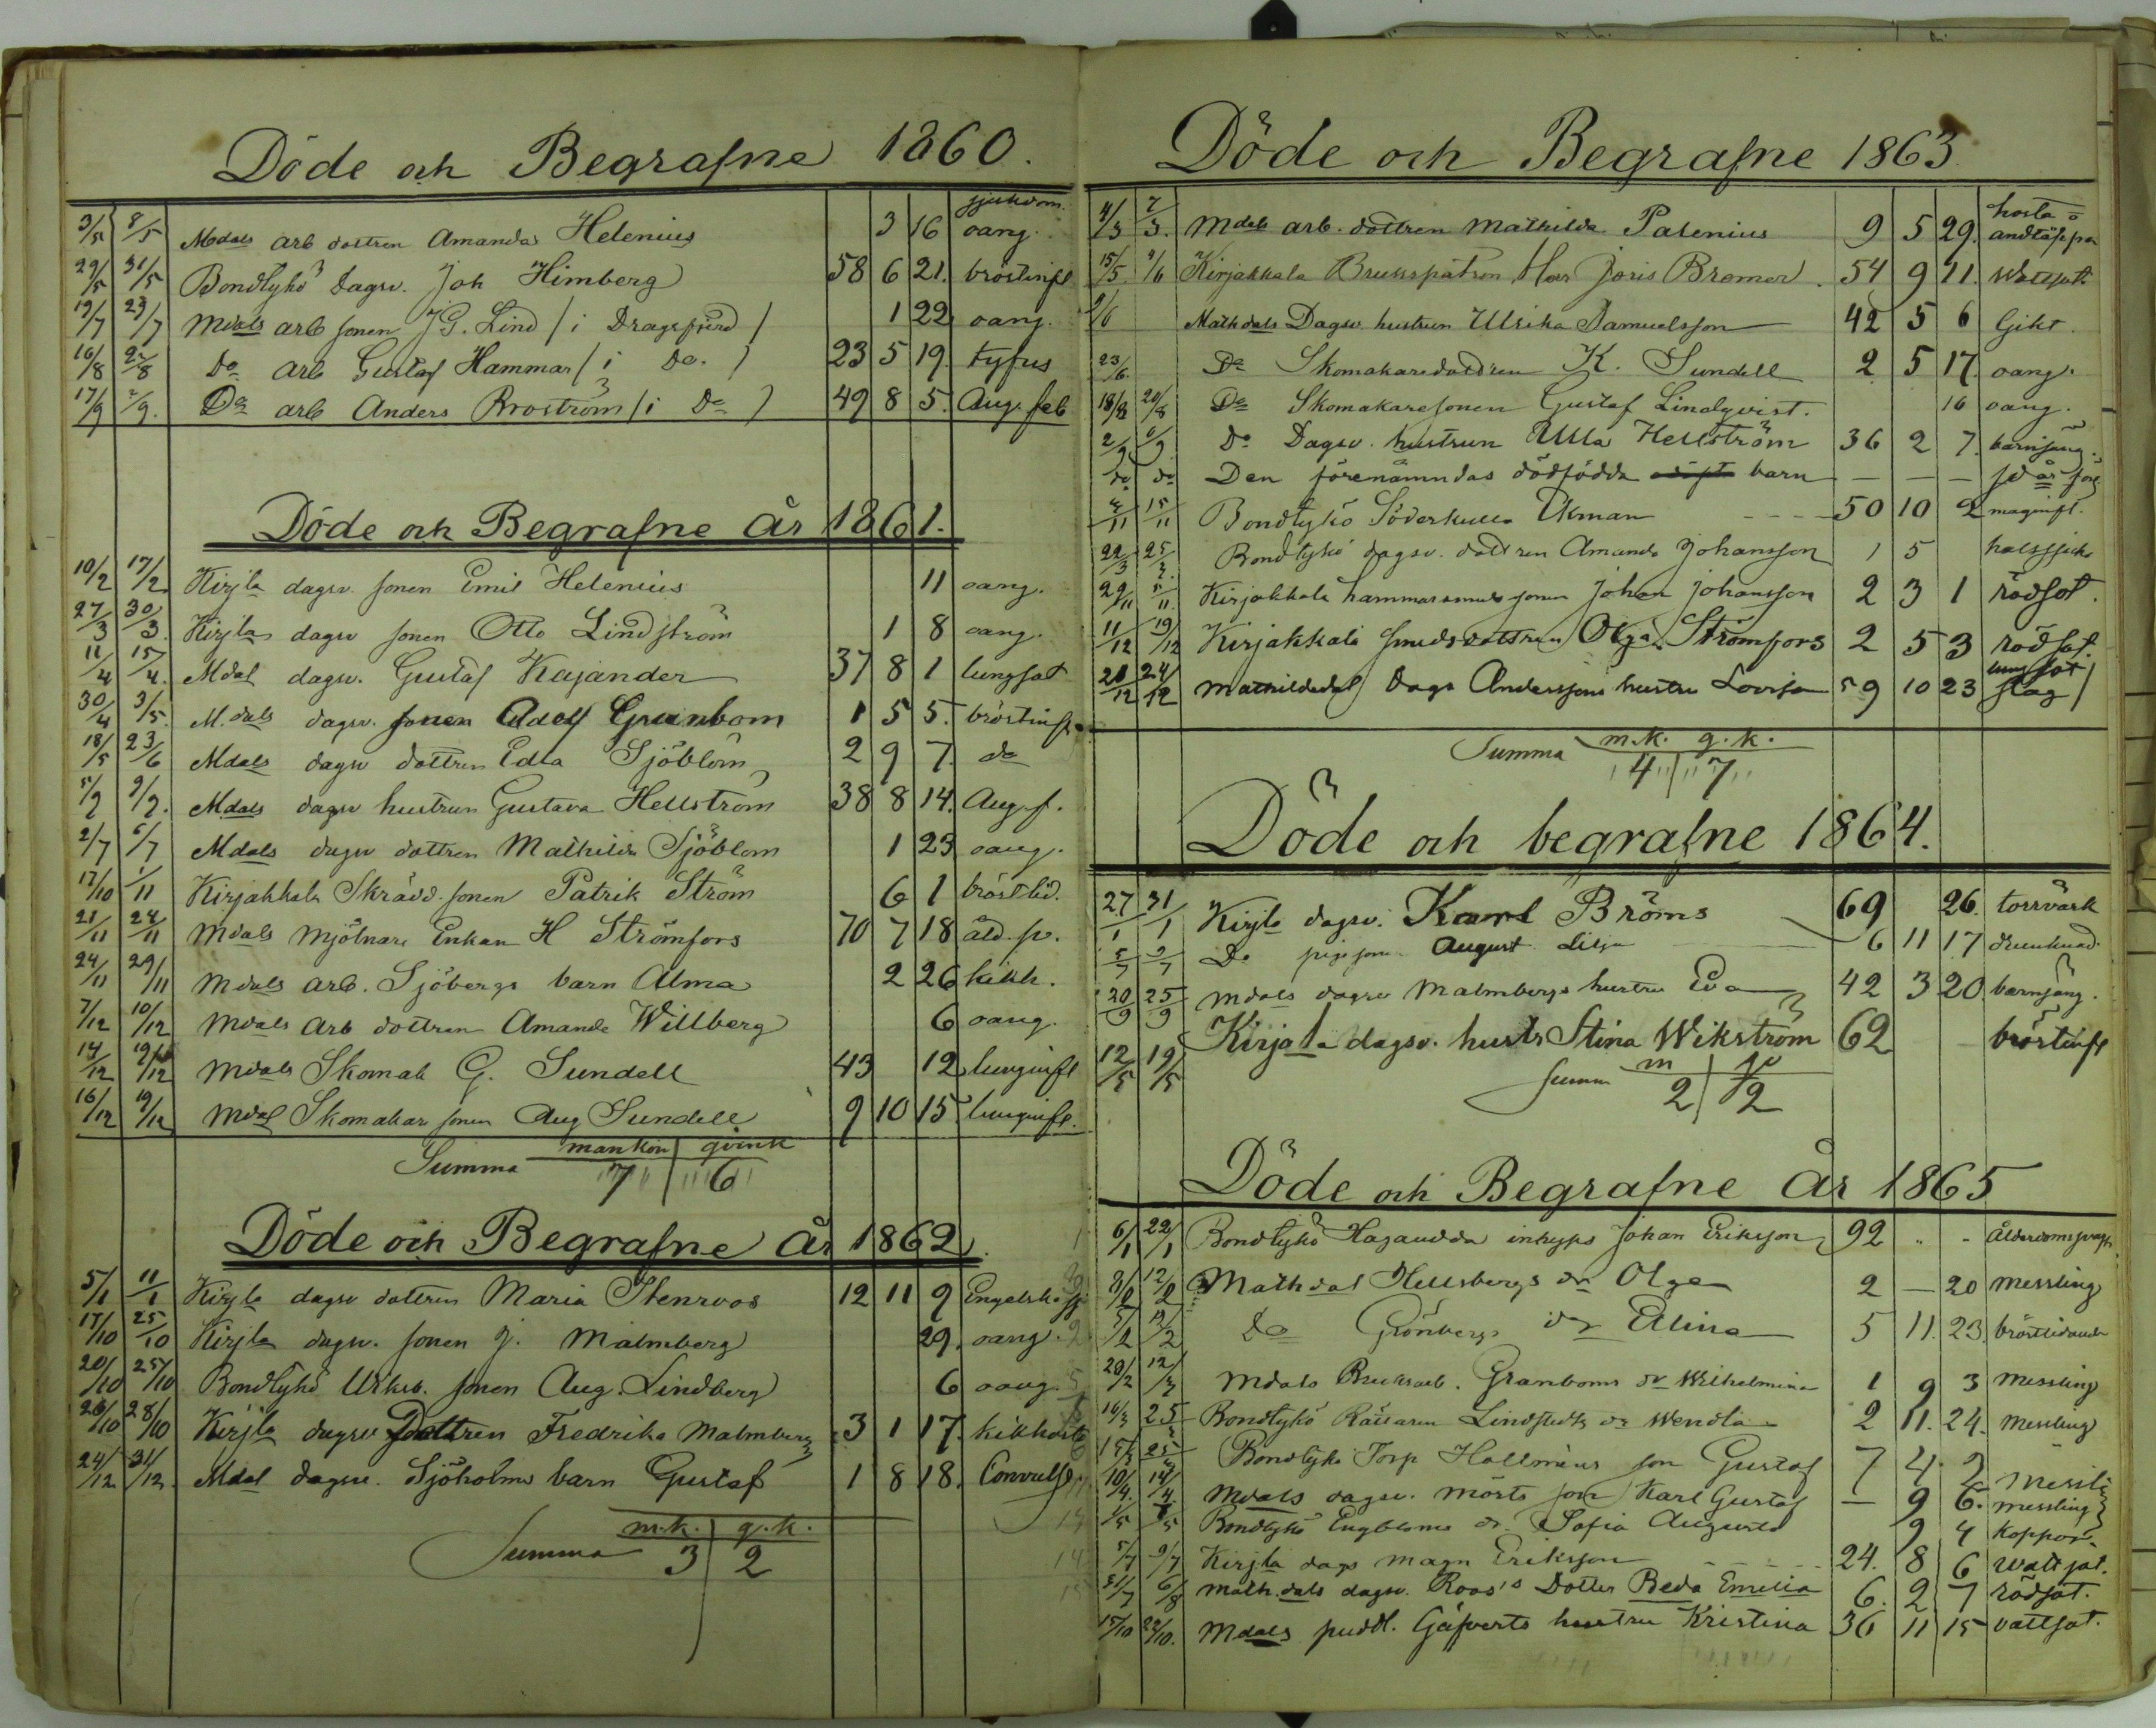 Döde och Begrafne 1860.
sjukdom.
3/5 8/5 Mdals arb dottren Amanda Helenius 3 16 oang.
29/5 31/5 Bondtykö Dagsv. Joh Himberg 58 6 21. bröstinfl
19/7 23/7 Mdals arb sonen J G. Lind / i Dragsfjerd / 1 22 oang.
16/8 22/8 Do arb Gustaf Hammar / i Do. / 23 5 19. tyfus
17/9 2/9. Do arb Anders Broström / i Do / 49 8 5. Aug. feb
Döde och Begrafne År 1861.
10/2 17/2 Kirjla dagsv. sonen Emil Helenius 11 oang.
27/3 30/3. Kirjla dagsv sonen Otto Lindström 1 8 oang.
11/4 15/4. Mdal dagsv. Gustaf Kajander 37 8 1 lungsot
30/4 3/5. M.dals dagsv. sonen Adolf Granbom 1 5 5. bröstinfl.
18/5 23/6 Mdals dagsv dottren Edla Sjöblom 2 9 7. do
5/2 9/2. Mdals dagsv hustrun Gustava Hellström 38 8 14. Aug. f.
2/7 6/7 Mdals dagsv dottren Mathilda Sjöblom 1 23 oang.
17/10 1/11 Kirjakkala Skrädd. sonen Patrik Ström 6 1 bröstlid.
21/11 24/11 Mdals Mjölnare Enkan H Strömfors 70 7 18 åld. sv.
24/11 29/11 Mdals arb. Sjöbergs barn Alma 2 26 kikh.
7/12 10/12 Mdals Arb dottren Amanda Willberg 6 oang.
14/12 19/12 Mdals Skomak G. Sundell 43 12 lunginfl
16/12 19/12 Mdal Skomakar sonen Aug Sundell 9 10 15. lunginfl.
Summa mankön 7 qvink 6
Döde och Begrafne År 1862.
5/1 11/1 Kirjla dagsv dottren Maria Stenroos 12 11 9 Engelska sj
17/10 25/10 Kirjla dagsv. sonen J. Malmberg 29. oang.
20/10 25/10 Bondtykö sonen Aug. Lindberg 6 oang.
26/10 28/10 Kirjla dagsv Dottren Fredrika Malmberg 3 1 17. kikhosta
24/12 31/12. Mdal dagsv. Sjöholms barn Gustaf 1 8 18. Convuls
Summa m.k. 3 q.k. 2
Döde och Begrafne 1863.
4/3 7/3. Mdals arb. dottren Mathilda Palenius 9 5 29. hosta o andtäppa
15/5. 9/6 Kirjakkala Brukspatron Herr Joris Bremer 54 9 11. Wattsot
2/6 Mathdals Dagsv. hustrun Ulrika Samuelsson 42 5 6 Gikt.
23/6. Do Skomakaredottren K. Sundell 2 5 17. oang.
18/8 20/8 Do Skomakaresonen Gustaf Lindqvist. 16 oang.
2/9. 6/9. Do Dagsv. hustrun Ulla Hellström 36 2 7. barnsäng.
do do Den förenämndas dödfödda barn — — —
4/11 15/11 Bondtykö Söderkulla Ekman 50 10 2 maginfl.
22/3 25/3. Bondtykö dagsv. dottren Amanda Johansson 1 5 halssjuka
29/11 5/11. Kirjakkala hammarsmeds sonen Johan Johansson 2 3 1 rödsot.
11/12 19/12 Kirjakkala smedsdottren Olga Strömfors 2 5 3 rödsot.
20/12 24/12 Mathildedal Dags Anderssons hustru Lovisa 59 10 23 lungsot slag /
Summa m.k. 4 q.k. 7
Döde och begrafne 1864.
27/1 31/1 Kirjla dagsv. Karl Bröms 69 26. torrvärk
5/7 9/7 Do pigs son August Lilja 6 11 17 drunknad.
20/9 25/9 Mdals dagsv Malmbergs hustru Eva 42 3 20. barnsäng.
12/5 19/5 Kirjala dagsv. hustr Stina Wikström 62 bröstinfl
Summ m 2 q 2
Döde och Begrafne År 1865
6/1 22/1 Bondtykö Hagaudda inhyses Johan Eriksson 92 " - Ålderdomssvagh.
8/2 12/2 Mathdal Hellsbergs dr Olga 2 — 20 messling
5/2 12/2 Do Grönbergs dr Elina 5 11. 23. bröstlidande
20/2 12/3 Mdals Bruksarb. Granboms dr Wilhelmina 1 9 3 messling
16/3 25 Bondtykö Rättaren Lindstedts dr Wendla 2 11. 24. messling
15/3 25/3 Bondtykö Torp Hallmans son Gustaf 7 4 2 messli
10/4. 14/4. Mdals dagsv. Mörts son Karl Gustaf — 9 6. messling
1/5 7/5 Bondtykö Engbloms dr. Sofia Augusta 9 4 koppor.
5/7 9/7 Kirjla dags Magn Eriksson 24. 8 6 wattsot.
31/7 6/8 Math.dals dagsv. Roos's Dotter Beda Emilia 6. 2 7 rödsot.
15/10 22/10. Mdals puddl. Gäfverts hustru Kristina 36 11 15 vattsot.